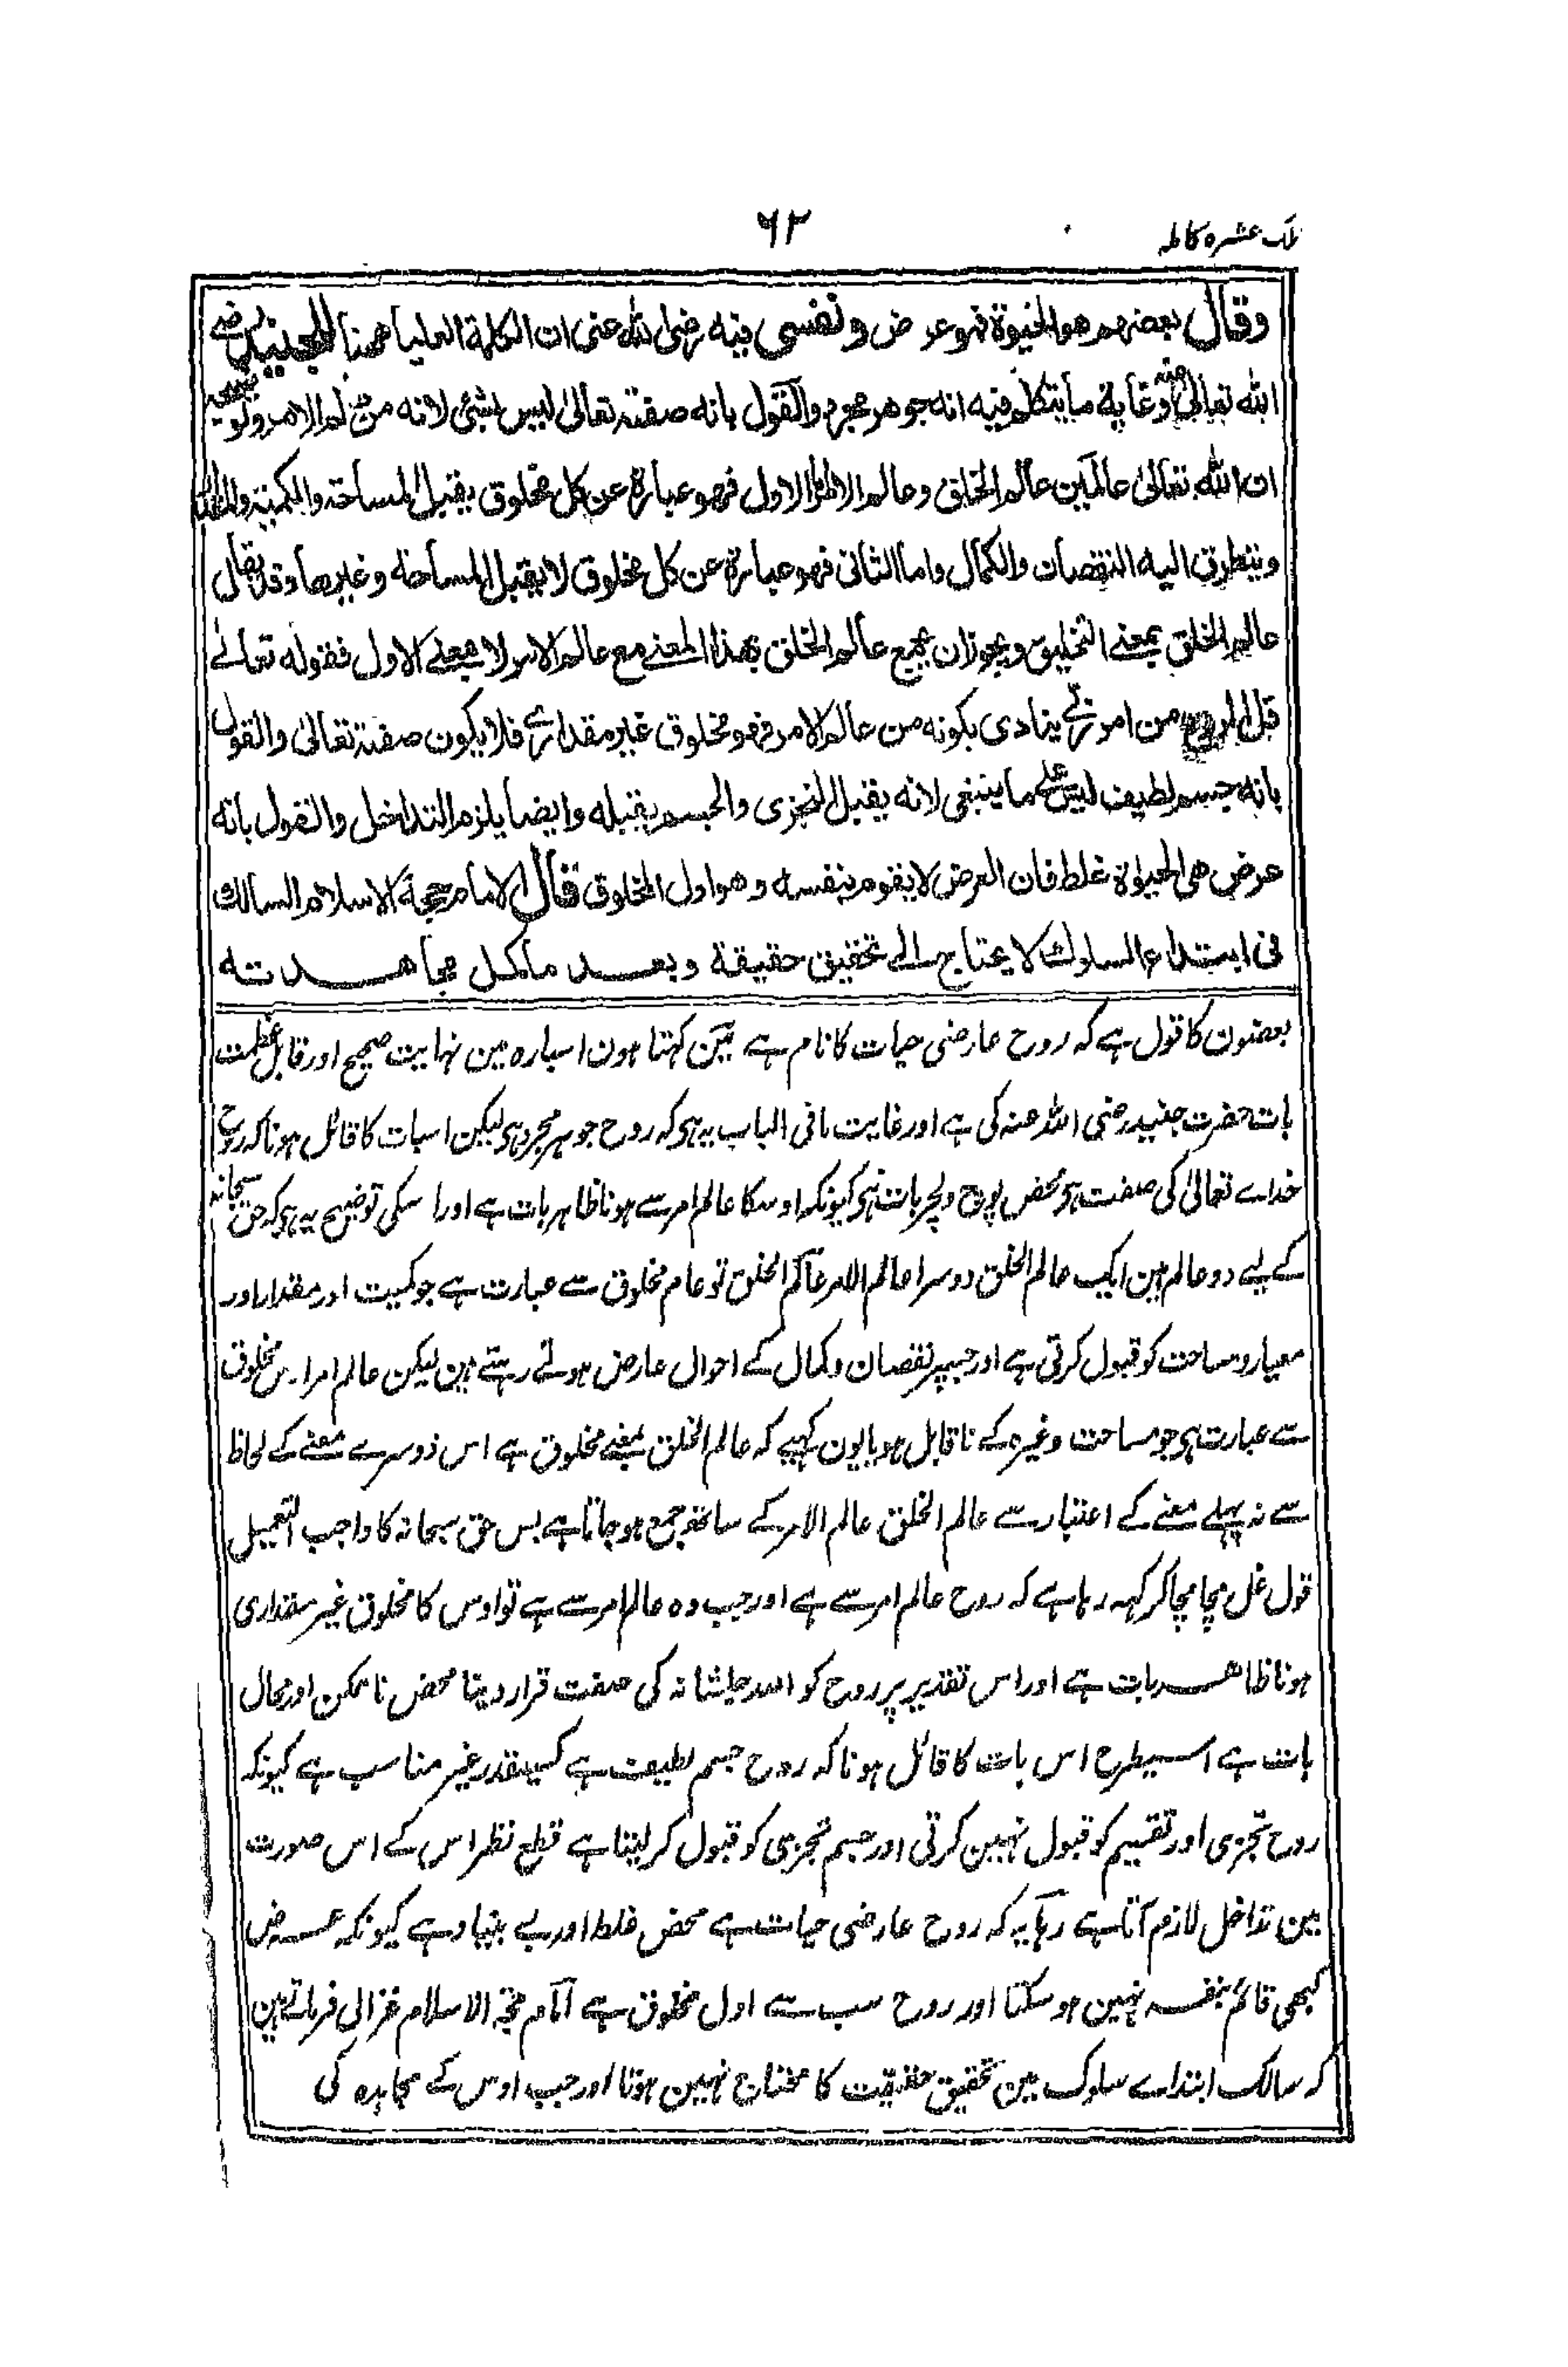 تلک عشرہ کاملہ
۶۲
وقال بعضهم هو الحيوة فهو عرض ونفسى فيه رضى الله عنى ان الكلمة العليا ههنا للجنيد رضي
الله تعالى عنه وغاية ما يتكلم فيه انه جوهر مجرد والقول بانه صفته تعالى ليس بشئ لانه من عالم الامر وتوضيحه
ان الله تعالى عالمين عالم الخلق وعالم الامر اما الاول فهو عبارة عن كل مخلوق يقبل المساحة والكمية والمقدار
ويتطرق اليه النقصان والكمال واما الثانى فهو عبارة عن كل مخلوق لا يقبل المساحة وغيرها وقد يقال
عالم الخلق بمعنى التخليق ويجوز ان يجمع عالم الخلق بهذا المعنى مع عالم الامر لا بمعنى الاول فقوله تعالى
قل الروح من امر ربي ينادى بكونه من عالم الامر فهو مخلوق غير مقدارى فلا يكون صفته تعالى والقول
بانه جسم لطيف ليس على ما ينبغى لانه لا يقبل التجزى والجسم يقبله وايضا يلزم التداخل والقول بانه
عرض هى الحيوة غلط فان العرض لا يقوم بنفسه وهو اول المخلوق قال الامام حجة الاسلام السالك
فى ابتداء السلوك لا يحتاج الى تحقيق حقيقة وبعد ما كمل مجاهدته
بعضون کا قول ہے کہ روح عارضی حیات کا نام ہے مین کہتا ہون اسبارہ مین نہایت صحیح اور قابل عظمت
بات حضرت جنید رضی اللہ عنہ کی ہے اور غایت ما فی الباب یہ ہی کہ روح جوہر مجرد ہی لیکن اسبات کا قائل ہونا کہ روح
خداے تعالیٰ کی صفت ہی محض پوچ ولچر بات ہی کیونکہ اوسکا عالم امر سے ہونا ظاہر بات ہے اور اسکی توضیح یہ ہی کہ حق سبحانہ
کے لیے دو عالم ہین ایک عالم الخلق دوسرا عالم الامر عالم الخلق تو عام مخلوق سے عبارت ہے جو کمیت اور مقدار اور
معیار و مساحت کو قبول کرتی ہے اور جسپر نقصان وکمال کے احوال عارض ہوتے رہتے ہین لیکن عالم امر اس مخلوق
سے عبارت ہی جو مساحت وغیرہ کے ناقابل ہو یا یون کہیے کہ عالم الخلق بمعنے مخلوق ہے اس دوسرے معنے کے لحاظ
سے نہ پہلے معنے کے اعتبار سے عالم الخلق عالم الامر کے ساتھ جمع ہو جاتا ہے بس حق سبحانہ کا واجب التعمیل
قول غل مچا مچا کر کہہ رہا ہے کہ روح عالم امر سے ہے اور جب وہ عالم امر سے ہے تو اوس کا مخلوق غیر مقداری
ہونا ظاہر بات ہے اور اس تقدیر پر روح کو اللہ جلشانہ کی صفت قرار دینا محض ناممکن اور محال
بات ہے اسیطرح اس بات کا قائل ہونا کہ روح جسم لطیف ہے کسیقدر غیر مناسب ہے کیونکہ
روح تجزی اور تقسیم کو قبول نہین کرتی اور جسم تجزی کو قبول کر لیتا ہے قطع نظر اس کے اس صورت
مین تداخل لازم آتا ہے رہا یہ کہ روح عارضی حیات ہے محض غلط اور بے بنیاد ہے کیونکہ عرض
کبھی قائم بنفسہ نہین ہو سکتا اور روح سب سے اول مخلوق ہے امام حجۃ الاسلام غزالی فرماتے ہین
کہ سالک ابتداے سلوک مین تحقیق حقیقت کا محتاج نہین ہوتا اور جب اوس کے مجاہدہ کی